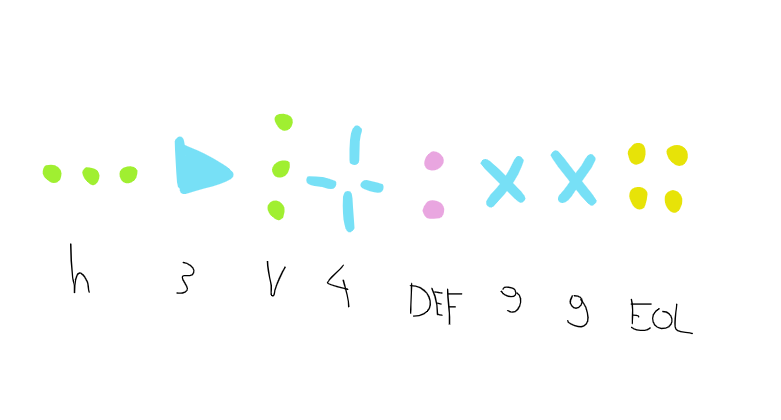 h 3 V 4 DEF 9 9 EOL